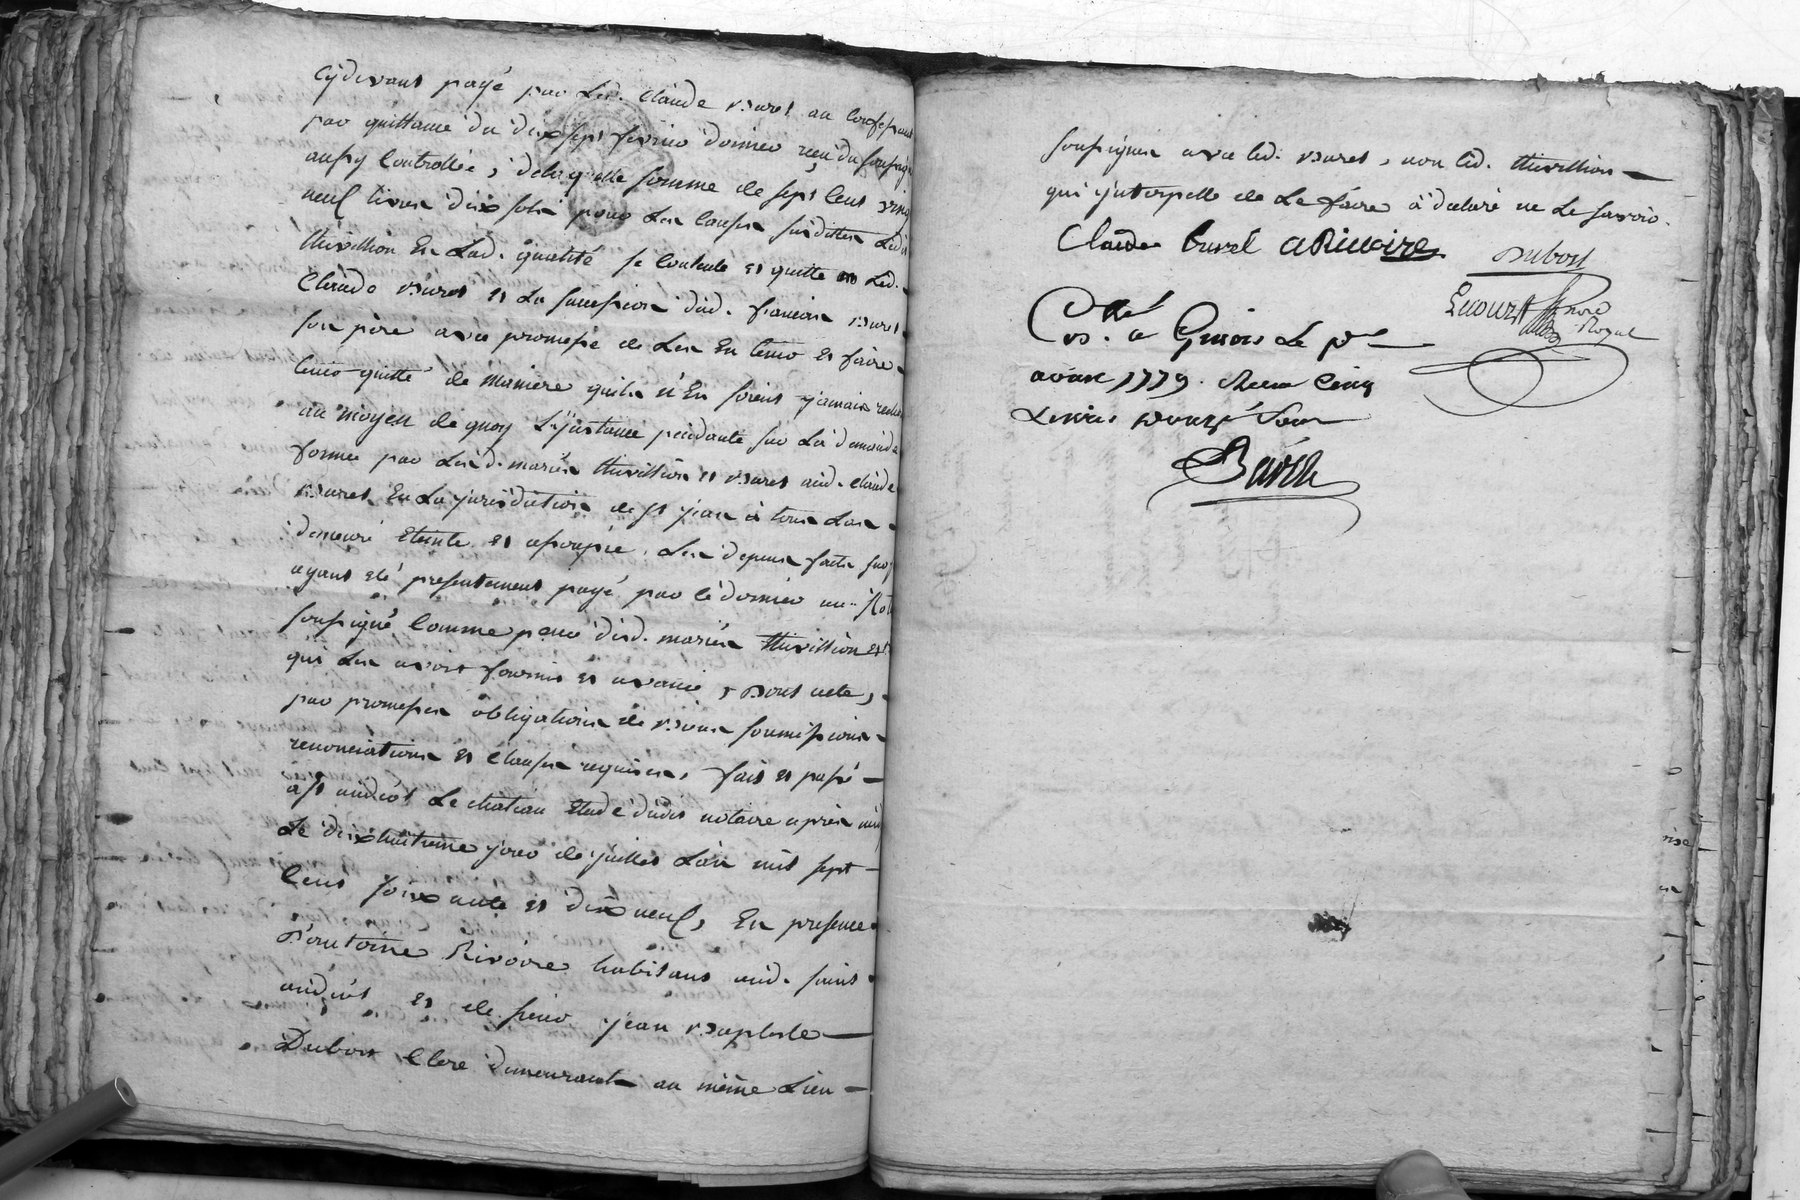 cydevant payé par Led. Claude Buret au confessant
par quittance du dix sept fevrier dernier reçu du soussigné
aussy Controllée, de laquelle somme de sept Cent vingt
neuf livres dix sols pour Les Causes susdittes Ledit
thivillion En Lad. qualité se Contente et quitte Led.
Claude Buret et La succession dud. francois Buret
son père avec promesse de Les En tenir et faire
tenir quitte de maniere quils n'En soient jamais
au moyen de quoy L'jnstance pendante sur La demande
formée par Lesd. mariés thivillion et Buret aud. Claude
Buret En La jurisdiction de St jean à tous Las
demeure Eteinte et assoupie. Les depens faits
ayant été presentement payé par le dernier au Not
soussigné Comme pour desd. mariés thivillion et
qui Les avoit fournis et avancé, Dont acte,
par promesses obligations de Biens soumissions
renonciations et Clauses requises, fait et passé
à St andéol Le chateau Etude dudit notaire après midi
Le dixhuitieme jour de juillet L'an mil sept
Cent soixante et dix neuf, En presence
D'antoine Rivoire habitant aud. saint
andéol et de sieur jean Baptiste
Dubost Clerc demeurants au même Lieu
soussignés avec led. Buret, non led. thivillion
qui jnterpellé de Le faire a declaré ne Le savoir.
Claude Buret ARivoire
Dubost
Not
Royal
Con.llé a Givors Le
1779. Recu Cinq
Livres